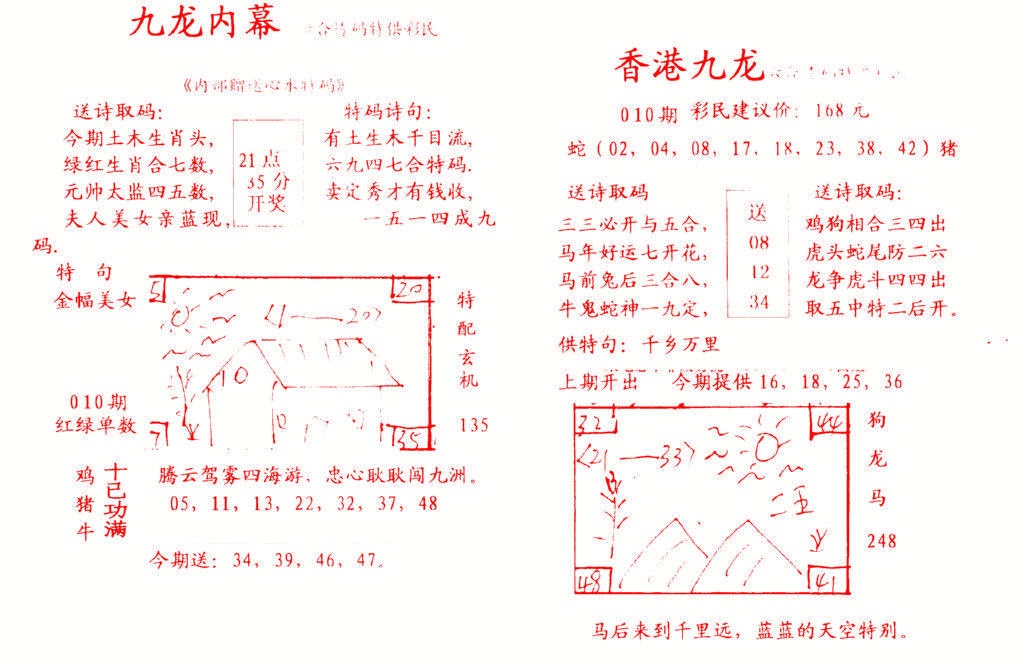 九龙内幕
《内部赠送心水特码》
送诗取码：
今期土木生肖头，
绿红生肖合七数，
元帅太监四五数，
夫人美女亲蓝现，
码.
21点
35分
开奖
特码诗句：
有土生木千目流，
六九四七合特码.
卖定秀才有钱收，
一五一四成九
特 句
金幅美女
010期
红绿单数
5
20
〈1——20〉
10
35
特
配
玄
机
135
鸡
猪
牛
十已功满
腾云驾雾四海游，忠心耿耿闯九洲。
05，11，13，22，32，37，48
今期送：34，39，46，47。
香港九龙
010期 彩民建议价：168元
蛇（02，04，08，17，18，23，38，42）猪
送诗取码
三三必开与五合，
马年好运七开花，
马前兔后三合八，
牛鬼蛇神一九定，
送
08
12
34
送诗取码：
鸡狗相合三四出
虎头蛇尾防二六
龙争虎斗四四出
取五中特二后开。
供特句：千乡万里
上期开出 今期提供16，18，25，36
32
44
〈21——33〉
二王
48
41
狗
龙
马
248
马后来到千里远，蓝蓝的天空特别。